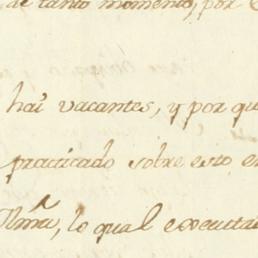 de tanto momento, por
hai vacantes, y por qu
practicado sobre esto, en
Illmã, lo qual executa